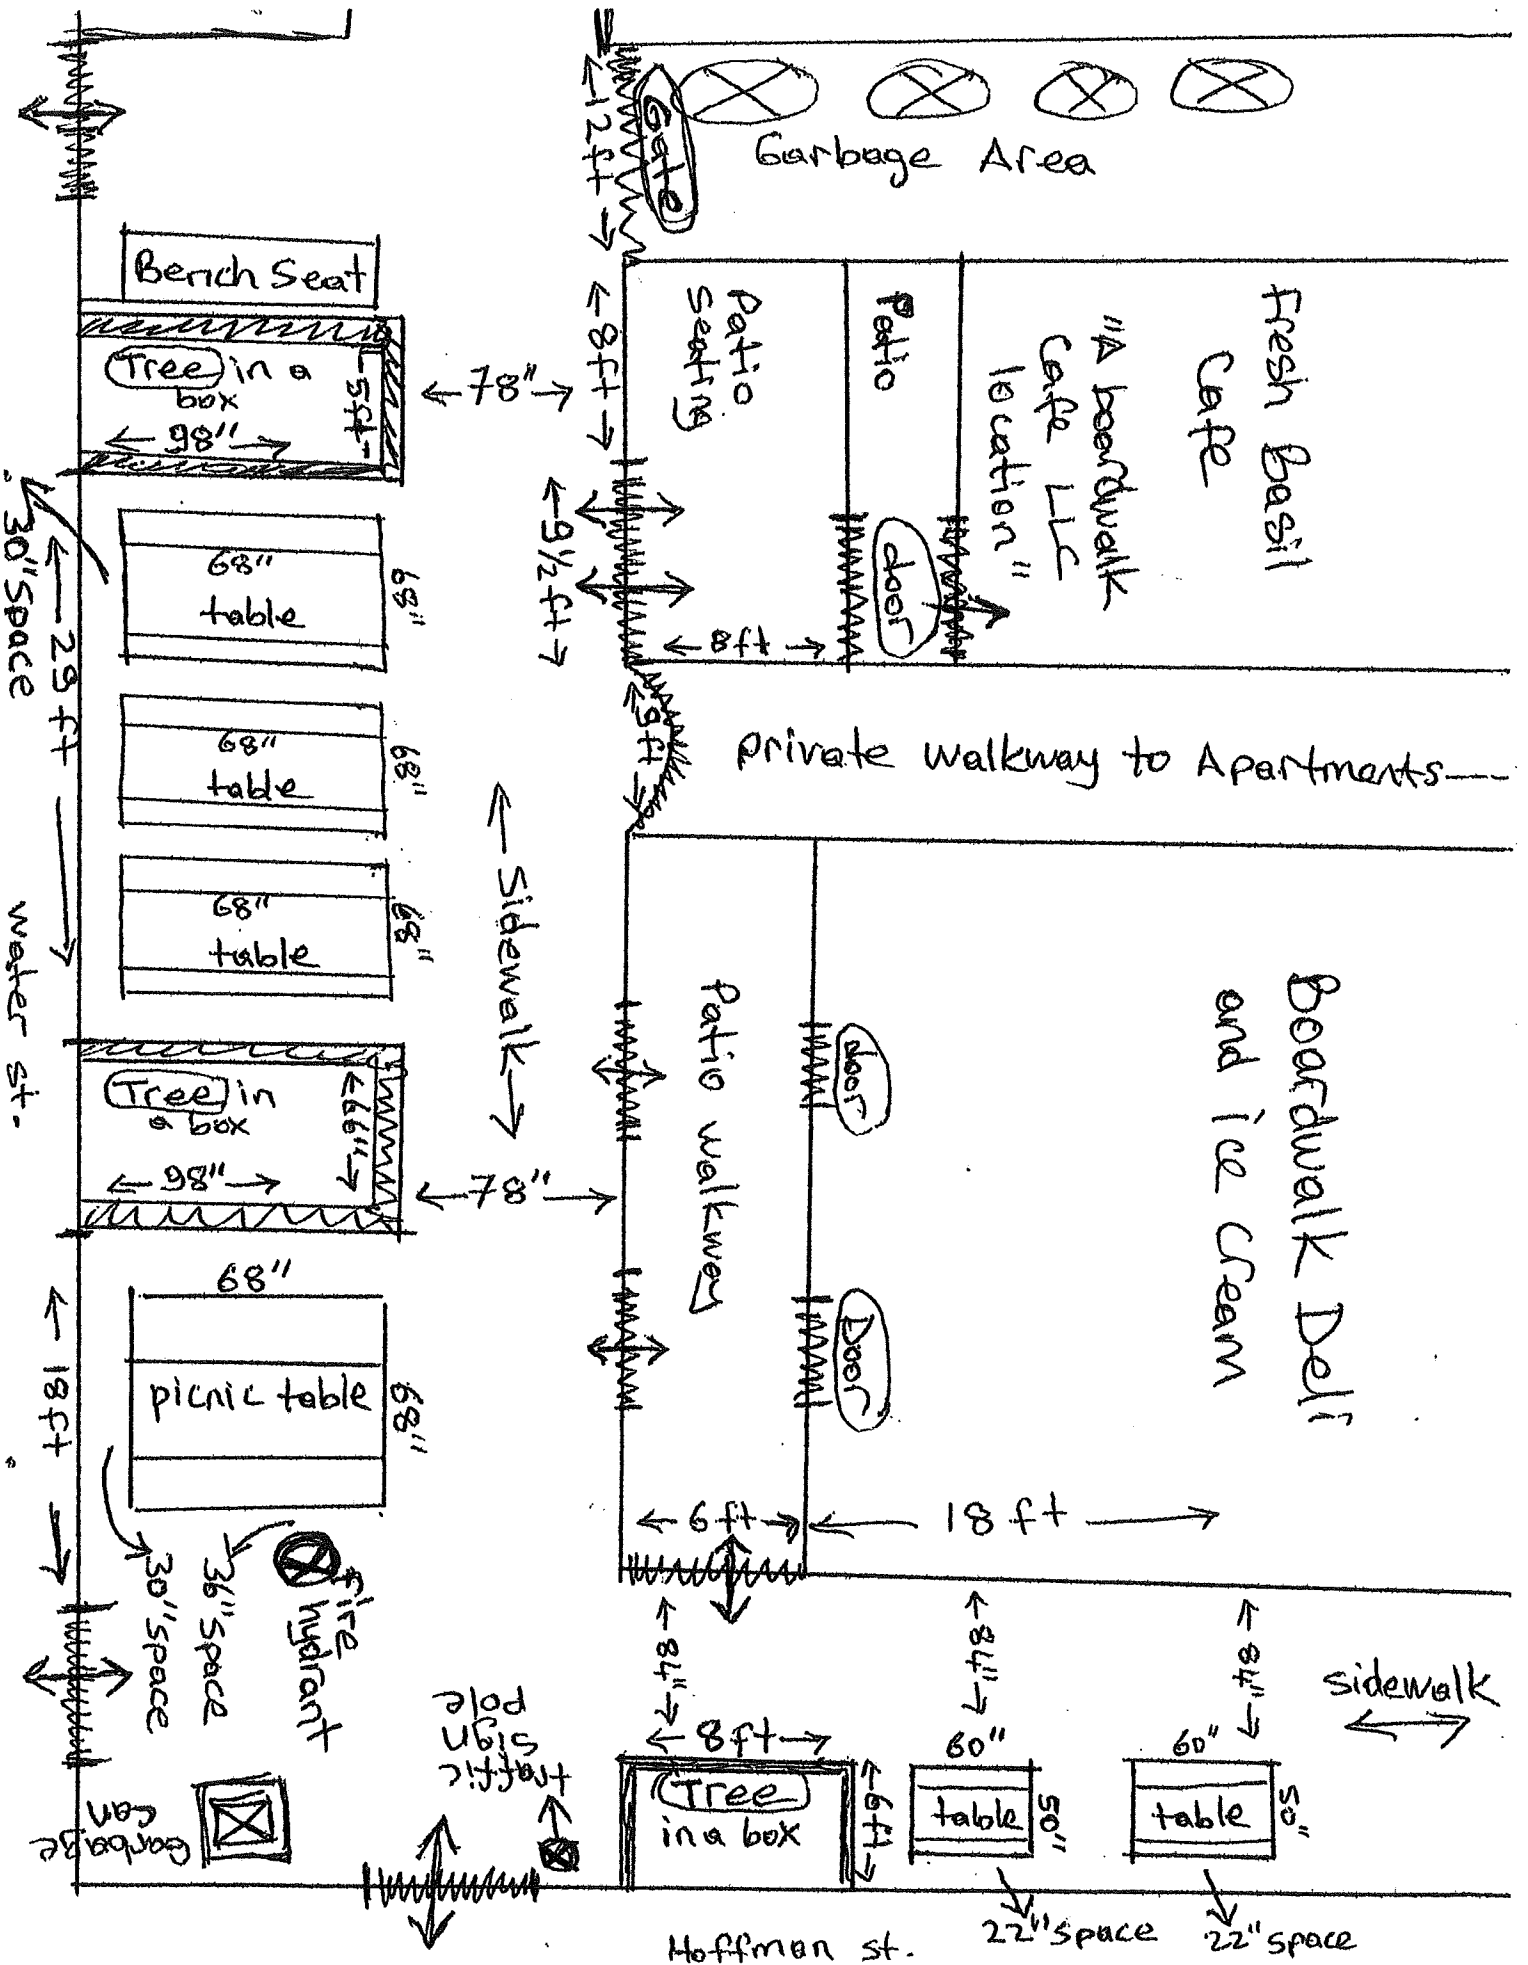 Gate
12ft
Garbage Area
Bench Seat
Tree in a
box
5ft
98"
78"
8ft
Patio
Seating
Patio
"A boardwalk
Cafe LLC
location"
Fresh Basil
Cafe
30" Space
29 ft
68"
table
68"
9½ ft
door
8ft
68"
table
68"
9ft
Private Walkway to Apartments----
68"
table
68"
Sidewalk
water st.
Tree in
a box
66"
98"
78"
Patio walkway
door
Door
Boardwalk Deli
and ice cream
68"
picnic table
68"
18ft
6 ft
18 ft
fire
hydrant
36" Space
30" Space
84"
84"
84"
Sidewalk
Garbage
can
traffic
sign
pole
8ft
Tree
in a box
6ft
60"
table
50"
60"
table
50"
22" Space
22" Space
Hoffman st.